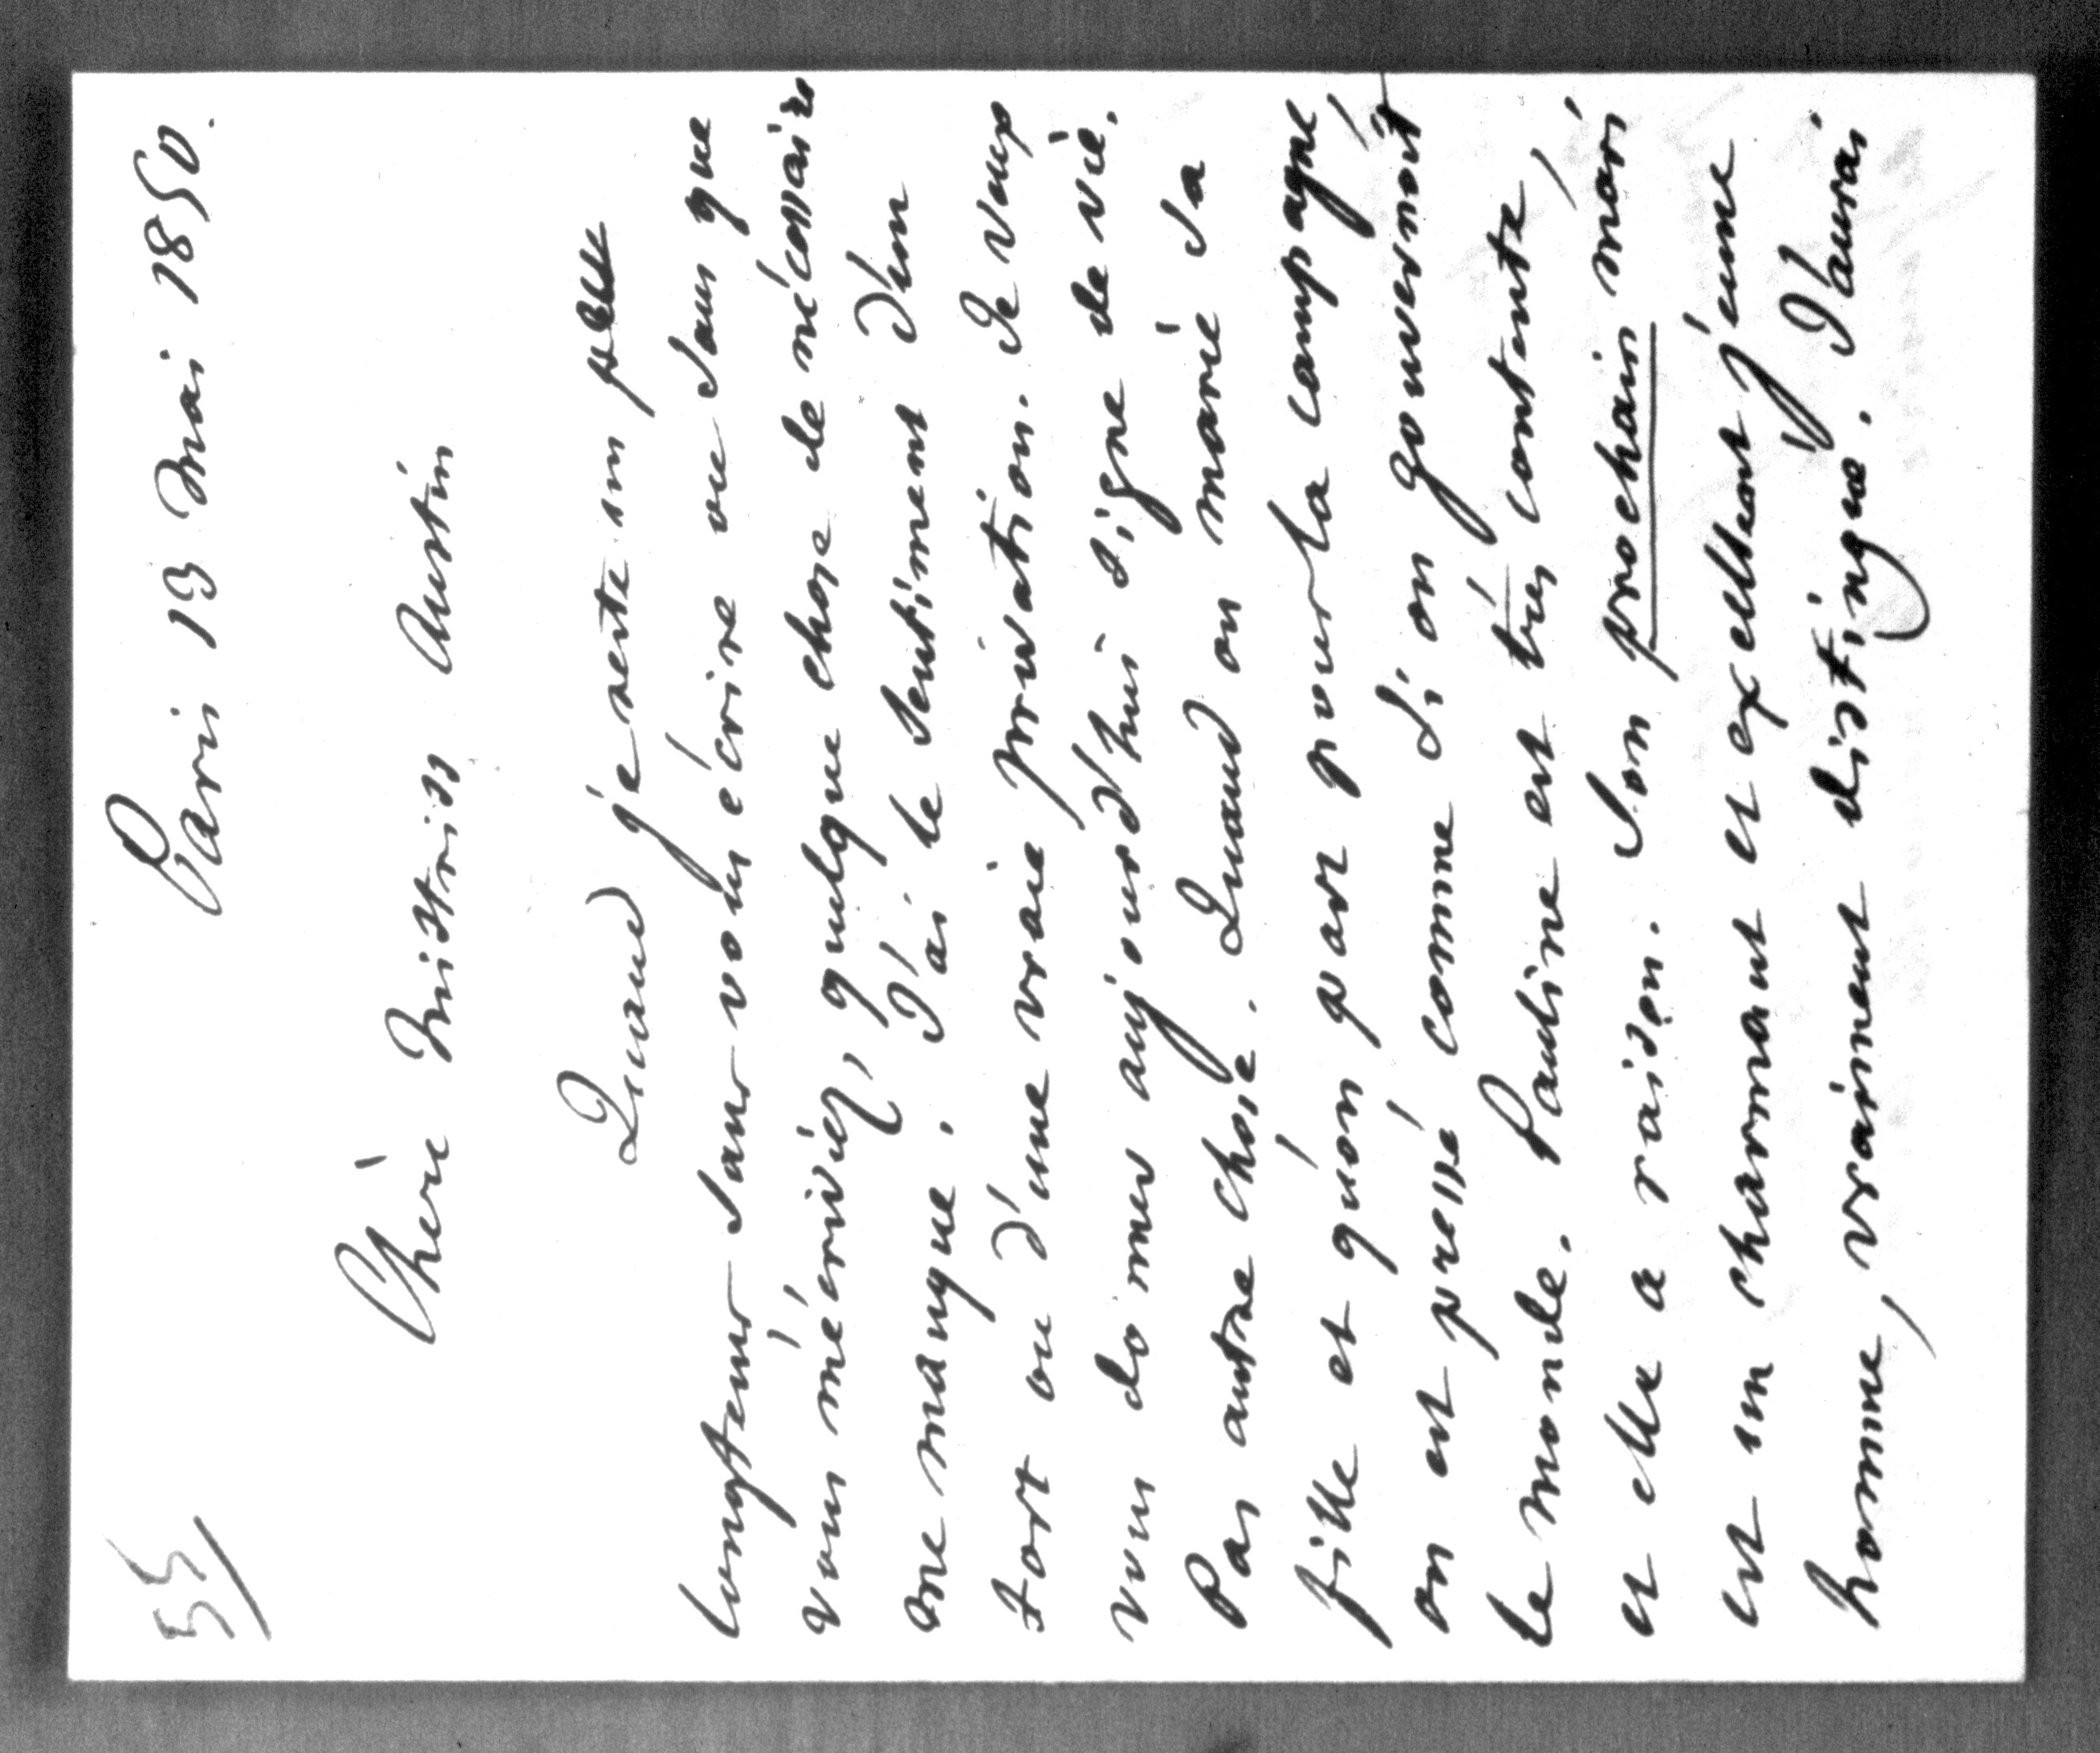 55
Paris 13 Mai 1850.
Chère Mistriss Austin
Quand je reste un
longtems sans vous écrire ou sans que
vous m'écriviez, quelque chose de nécessaire
me manque. J'ai le sentiment d'un
tort ou d'une vraie privation. Je veux
vous donner aujourd'hui signe de vie.
Pas autre chose. Quand on marie sa
fille et qu'on part pour la campagne,
on est pressé comme si on gouvernoit
le monde. Pauline est très contente,
et elle a raison. Son prochain mari
est un charmant et excellent jeune
homme, vraiment distingué. J'aurai